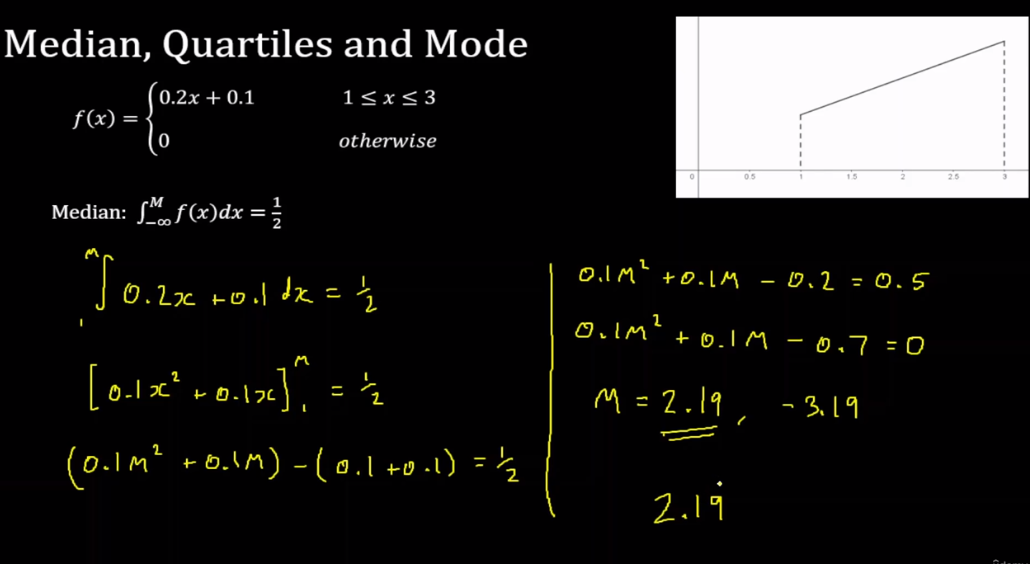 Median, Quartiles and Mode
f(x) = {0.2x + 0.1    1 ≤ x ≤ 3
0    otherwise
0 0.5 1 1.5 2 2.5 3
Median: ∫_{-∞}^{M} f(x)dx = 1/2
∫_{1}^{M} 0.2x + 0.1 dx = 1/2
[0.1x² + 0.1x]_{1}^{M} = 1/2
(0.1M² + 0.1M) - (0.1 + 0.1) = 1/2
0.1M² + 0.1M - 0.2 = 0.5
0.1M² + 0.1M - 0.7 = 0
M = 2.19, -3.19
2.19